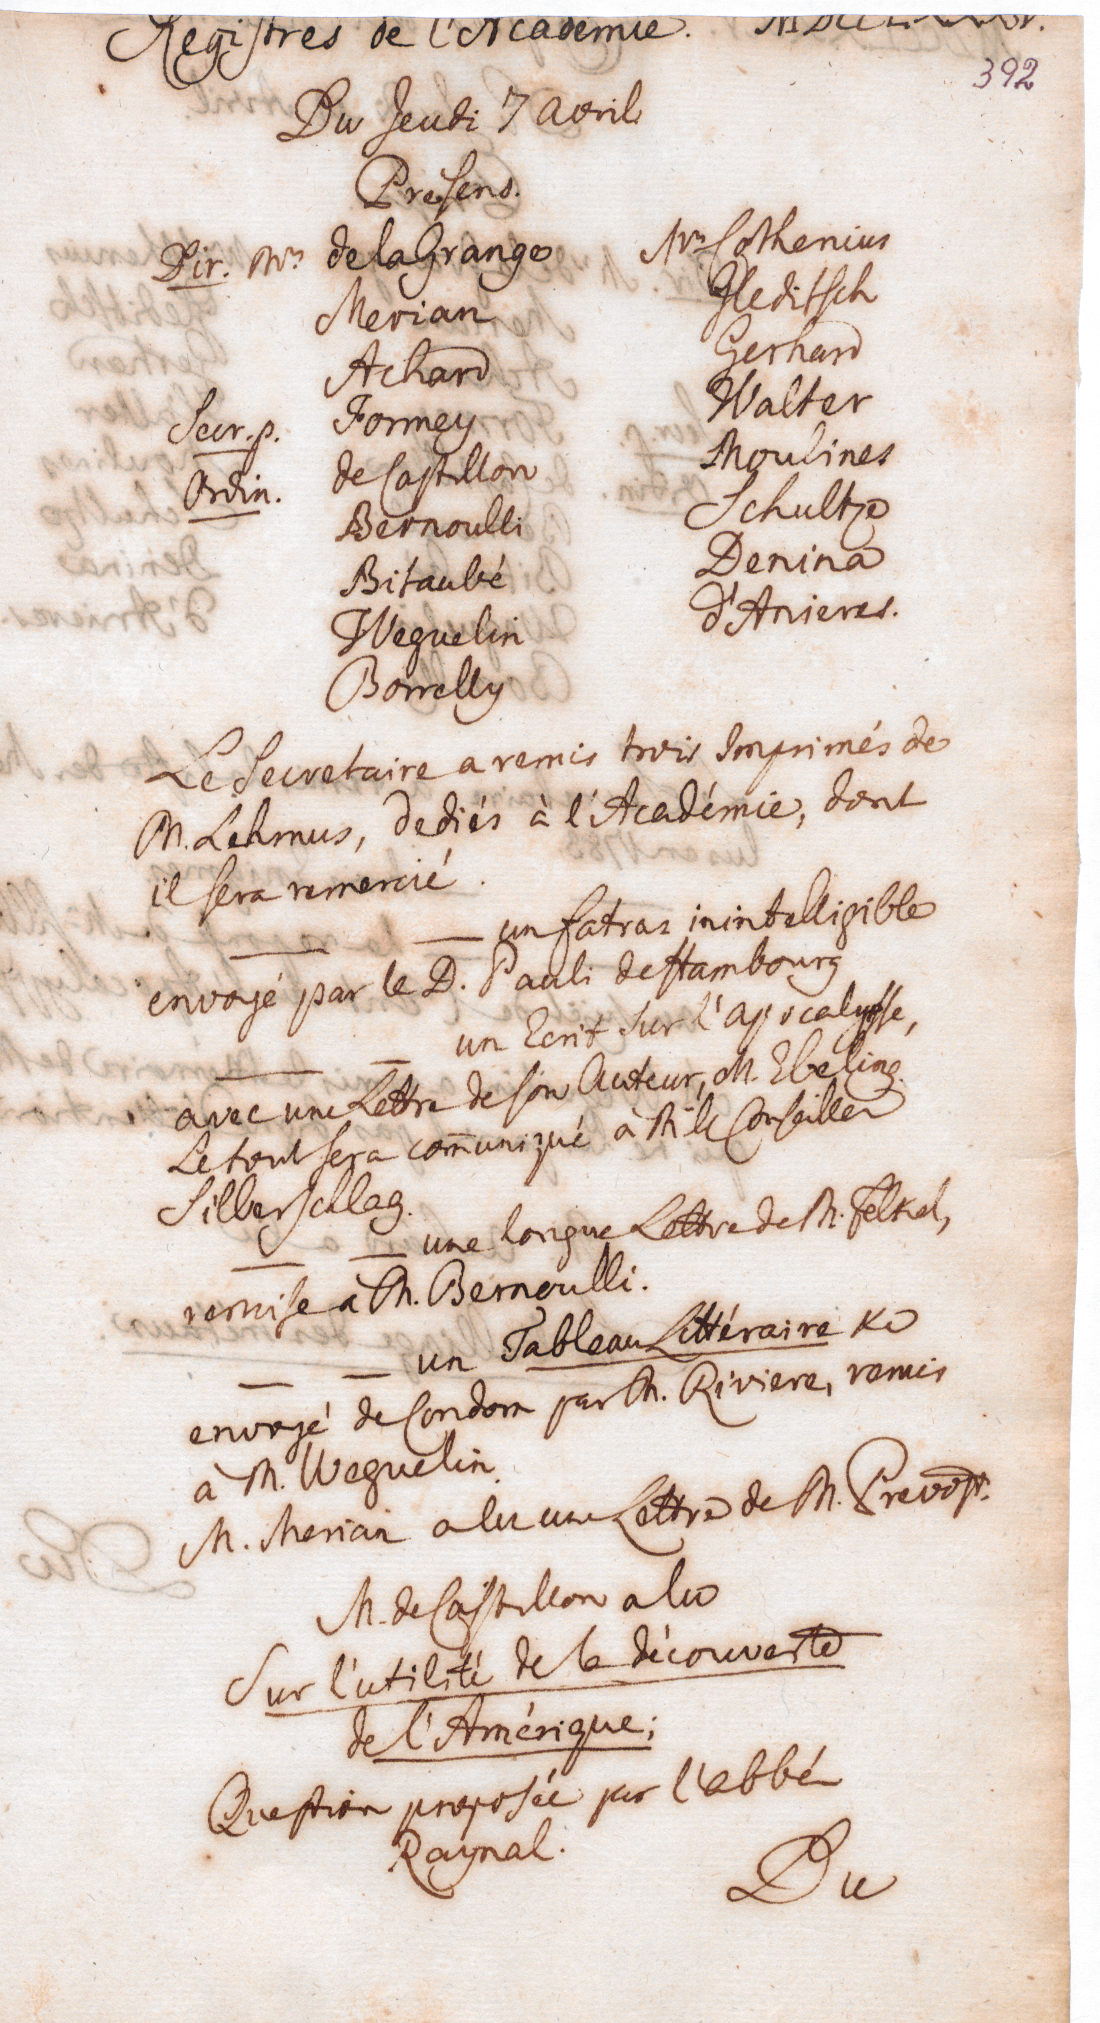 Registres de l'Academie. MDCCLXXXV.
392
Du Jeudi 7 Avril
Presens.
Dir. Mrs de la Grange
Merian
Achard
Secr. p. Formey
Ordin. de Castillon
Bernoulli
Bitaubé
Weguelin
Borrelly
Mrs Cothenius
Gleditsch
Gerhard
Walter
Moulines
Schultze
Denina
d'Anieres.
Le Secretaire a remis trois Imprimés de
M. Lehmus, dediés à l'Académie, dont
il sera remercié.
— — un fatras inintelligible
envoyé par le D. Pauli de Hambourg
— — un Ecrit sur l'apocalypse,
avec une Lettre de son Auteur, M. Ebeling.
Le tout sera com̅uniqué à M. le Conseiller
Silberschlag.
— — une longue Lettre de M. Felkel,
remise à M. Bernoulli.
— — un Tableau Littéraire &c
envoyé de Condom par M. Riviere, remis
à M. Weguelin.
M. Merian a lu une Lettre de M. Prevost.
M. de Castillon a lu
Sur l'utilité de la découverte
de l'Amérique;
Question proposée par l'abbé
Raynal.
Du